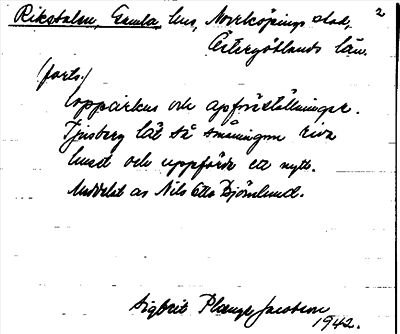 2
Rikstalen, Gamla hus, Norrköpings stad,
Östergötlands län.
(forts.)
loppcirkus och apföreställningar.
Tjusberg lät så småningom riva
huset och uppförde ett nytt.
Meddelat av Nils Otto Björnlund.
Sigbrit Plænge Jacobson
1942.